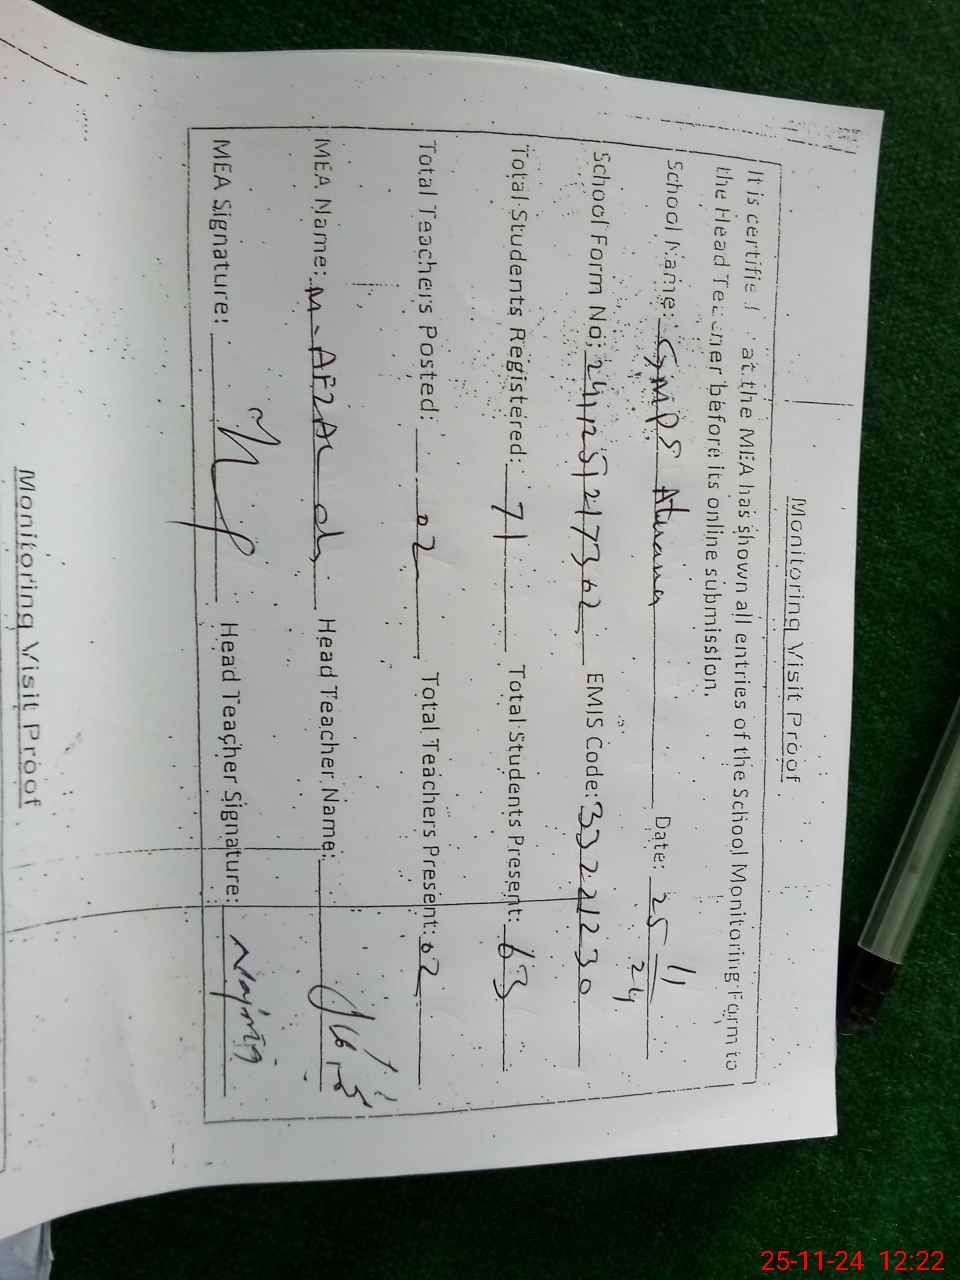 Monitoring Visit Proof
It is certified at the MEA has shown all entries of the School Monitoring Form to
the Head Teacher before its online submission.
School Name: GMPS Date: 25 11 24
School Form No: 241125121736 2 EMIS Code: 33221230
Total Students Registered: 71 Total Students Present: 63
Total Teachers Posted: 02 Total Teachers Present: 02
MEA Name: M. AFZAL Head Teacher Name:
MEA Signature: Head Teacher Signature:
Monitoring Visit Proof
25-11-24 12:22